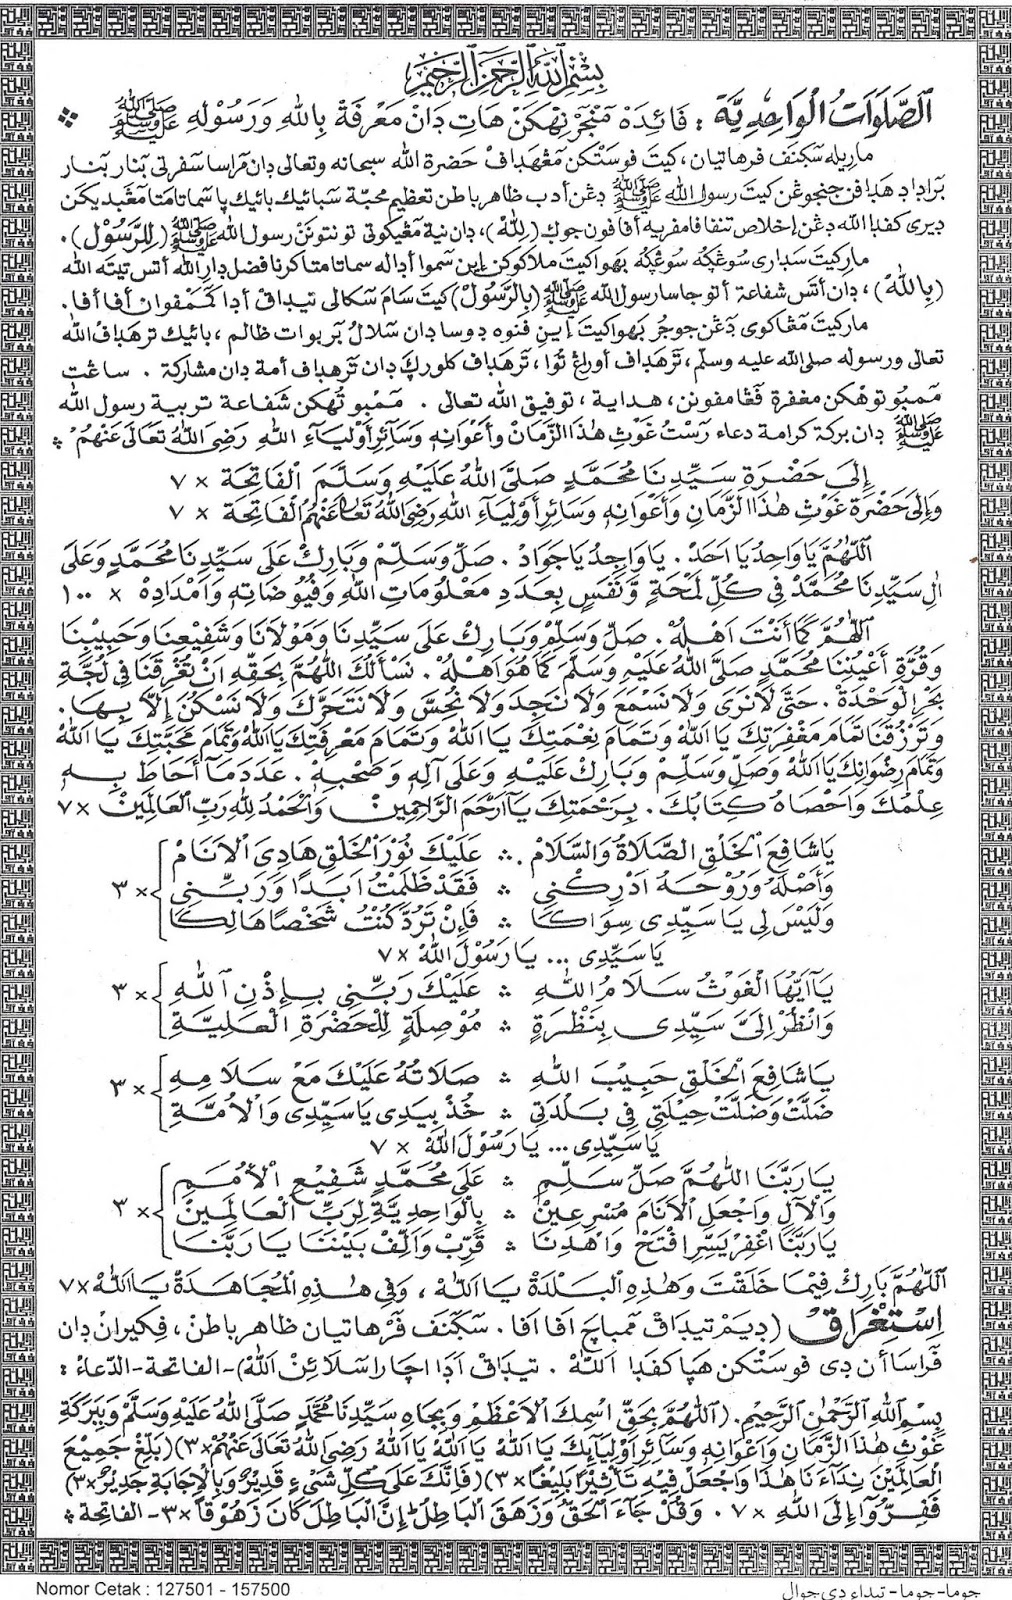 بِسْمِ اللهِ الرَّحْمٰنِ الرَّحِيْمِ
اَلصَّلَوَاتُ الْوَاحِدِيَّة : فائدة منجرنيهكن هات دان مَعْرِفَةْ بِاللهِ وَرَسُوْلِهِ صلى الله عليه وسلم
ماريله سكنف فرهاتيان، كيت فوستكن مڠهداف حضرة الله سبحانه وتعالى دان مراسا سفرتي بنار بنار
برادا د هدافن جنجوڠن كيت رسول الله صلى الله عليه وسلم دڠن أدب ظاهر باطن تعظيم محبة سبائيك بائيك يا سماتا متا مڠبديكن
ديري كفدا الله دڠن إخلاص تنفا فامريه أفا فون جوݢ (لِلّٰهْ)، دان نية مڠيكوتي تونتونن رسول الله صلى الله عليه وسلم (لِلرَّسُوْل).
مار كيت سداري سوڠݢه سوڠݢه بهوا كيت ملاكوكن اين سموا أداله سماتا متا كرنا فضل دار الله أتس تيته الله
(بِاللهْ)، دان أتس شفاعة أتو جاسا رسول الله صلى الله عليه وسلم (بِالرَّسُوْل) كيت سام سكالي تيداق أدا كممفوان أفا أفا.
مار كيت مڠاكوي دڠن جوجر بهوا كيت اين فنوه دوسا دان سلالو بربوات ظالم، بائيك ترهداف الله
تعالى ورسوله صلى الله عليه وسلم، ترهداف أورڠ توا، ترهداف كلورݢ دان ترهداف أمة دان مشاركة. ساڠت
ممبوتوهكن مغفرة فڠامفونن، هداية، توفيق الله تعالى. ممبوتهكن شفاعة تربية رسول الله
صلى الله عليه وسلم دان بركة كرامة دعاء رستُ غَوْثِ هٰذَا الزَّمَانْ وَأَعْوَانِهِ وَسَائِرِ أَوْلِيَاءِ اللهِ رَضِيَ اللهُ تَعَالَى عَنْهُمْ
إِلَى حَضْرَةِ سَيِّدِنَا مُحَمَّدٍ صَلَّى اللهُ عَلَيْهِ وَسَلَّمَ الْفَاتِحَة × ٧
وَإِلَى حَضْرَةِ غَوْثِ هٰذَا الزَّمَانِ وَأَعْوَانِهِ وَسَائِرِ أَوْلِيَاءِ اللهِ رَضِيَ اللهُ تَعَالَى عَنْهُمُ الْفَاتِحَة × ٧
اَللّٰهُمَّ يَا وَاحِدُ يَا اَحَدْ. يَا وَاجِدُ يَا جَوَادْ. صَلِّ وَسَلِّمْ وَبَارِكْ عَلَى سَيِّدِنَا مُحَمَّدٍ وَعَلَى
اٰلِ سَيِّدِنَا مُحَمَّدْ فِى كُلِّ لَمْحَةٍ وَّنَفَسٍ بِعَدَدِ مَعْلُومَاتِ اللهِ وَفُيُوضَاتِهِ وَاَمْدَادِهْ × ١٠٠
اَللّٰهُمَّ كَمَا أَنْتَ اَهْلُهْ. صَلِّ وَسَلِّمْ وَبَارِكْ عَلَى سَيِّدِنَا وَمَوْلَانَا وَشَفِيْعِنَا وَحَبِيْبِنَا
وَقُرَّةِ أَعْيُنِنَا مُحَمَّدٍ صَلَّى اللهُ عَلَيْهِ وَسَلَّمَ كَمَا هُوَ اَهْلُهْ. نَسْأَلُكَ اللّٰهُمَّ بِحَقِّهِ اَنْ تُغْرِقَنَا فِى لُجَّةِ
بَحْرِ الْوَحْدَةْ. حَتّٰى لَا نَرٰى وَلَا نَسْمَعَ وَلَا نَجِدَ وَلَا نُحِسَّ وَلَا نَتَحَرَّكَ وَلَا نَسْكُنَ اِلَّا بِهَا.
وَتَرْزُقَنَا تَمَامَ مَغْفِرَتِكَ يَا اَللهُ وَتَمَامَ نِعْمَتِكَ يَا اَللهُ وَتَمَامَ مَعْرِفَتِكَ يَا اَللهُ وَتَمَامَ مَحَبَّتِكَ يَا اَللهُ
وَتَمَامَ رِضْوَانِكَ يَا اَللهُ وَصَلِّ وَسَلِّمْ وَبَارِكْ عَلَيْهِ وَعَلَى اٰلِهِ وَصَحْبِهْ. عَدَدَ مَا أَحَاطَ بِهِ
عِلْمُكَ وَاَحْصَاهُ كِتَابُكَ. بِرَحْمَتِكَ يَا اَرْحَمَ الرَّاحِمِيْنَ وَالْحَمْدُ لِلّٰهِ رَبِّ الْعَالَمِيْنْ × ٧
يَا شَافِعَ الْخَلْقِ الصَّلَاةُ وَالسَّلَامْ ∴ عَلَيْكَ نُوْرَ الْخَلْقِ هَادِيَ الْاَنَامْ
وَأَصْلَهُ وَرُوْحَهُ اَدْرِكْنِى ∴ فَقَدْ ظَلَمْتُ اَبَدًا وَّرَبِّنِى × ٣
وَلَيْسَ لِى يَا سَيِّدِى سِوَاكَا ∴ فَاِنْ تَرُدَّ كُنْتُ شَخْصًا هَالِكًا
يَا سَيِّدِى ... يَا رَسُوْلَ اللهْ × ٧
يَا اَيُّهَا الْغَوْثُ سَلَامُ اللهِ ∴ عَلَيْكَ رَبِّنِى بِاِذْنِ اللهِ × ٣
وَانْظُرْ اِلَىَّ سَيِّدِى بِنَظْرَةٍ ∴ مُوْصِلَةٍ لِلْحَضْرَةِ الْعَلِيَّةِ
يَا شَافِعَ الْخَلْقِ حَبِيْبَ اللهِ ∴ صَلَاتُهُ عَلَيْكَ مَعْ سَلَامِهِ × ٣
ضَلَّتْ وَضَلَّتْ حِيْلَتِى فِى بَلْدَتِى ∴ خُذْ بِيَدِى يَا سَيِّدِى وَالْاُمَّةِ
يَا سَيِّدِى ... يَا رَسُوْلَ اللهْ × ٧
يَا رَبَّنَا اللّٰهُمَّ صَلِّ سَلِّمِ ∴ عَلَى مُحَمَّدٍ شَفِيْعِ الْاُمَمِ
وَالْاٰلِ وَاجْعَلِ الْاَنَامَ مُسْرِعِيْنْ ∴ بِالْوَاحِدِيَّةِ لِرَبِّ الْعَالَمِيْنْ × ٣
يَا رَبَّنَا اغْفِرْ يَسِّرِ افْتَحْ وَاهْدِنَا ∴ قَرِّبْ وَاَلِّفْ بَيْنَنَا يَا رَبَّنَا
اَللّٰهُمَّ بَارِكْ فِيْمَا خَلَقْتَ وَهٰذِهِ الْبَلْدَةْ يَا اَللهْ، وَفِى هٰذِهِ الْمُجَاهَدَةْ يَا اَللهْ × ٧
اِسْتِغْرَاقْ (ديم تيداق ممباچ افا افا. سكنف فرهاتيان ظاهر باطن، فكيران دان
فراسأن دي فوستكن هيا كفدا اَللهْ. تيداق ادا اچارا سلائن اللهْ)- الفاتحة - الدّعاء :
بِسْمِ اللهِ الرَّحْمٰنِ الرَّحِيْمِ. (اَللّٰهُمَّ بِحَقِّ اسْمِكَ الْاَعْظَمِ وَبِجَاهِ سَيِّدِنَا مُحَمَّدٍ صَلَّى اللهُ عَلَيْهِ وَسَلَّمَ وَبِبَرَكَةِ
غَوْثِ هٰذَا الزَّمَانِ وَاَعْوَانِهِ وَسَائِرِ اَوْلِيَائِكَ يَا اَللهُ يَا اَللهُ يَا اَللهُ رَضِيَ اللهُ تَعَالَى عَنْهُمْ × ٣) (بَلِّغْ جَمِيْعَ
الْعَالَمِيْنَ نِدَاءَنَا هٰذَا وَاجْعَلْ فِيْهِ تَأْثِيْرًا بَلِيْغًا × ٣) (فَاِنَّكَ عَلَى كُلِّ شَيْءٍ قَدِيْرٌ وَبِالْاِجَابَةِ جَدِيْرٌ × ٣)
فَفِرُّوْا اِلَى اللهِ × ٧. وَقُلْ جَاءَ الْحَقُّ وَزَهَقَ الْبَاطِلُ اِنَّ الْبَاطِلَ كَانَ زَهُوْقًا × ٣ - الفاتحة
Nomor Cetak : 127501 - 157500
جوما-جوما - تيداء دي جوال